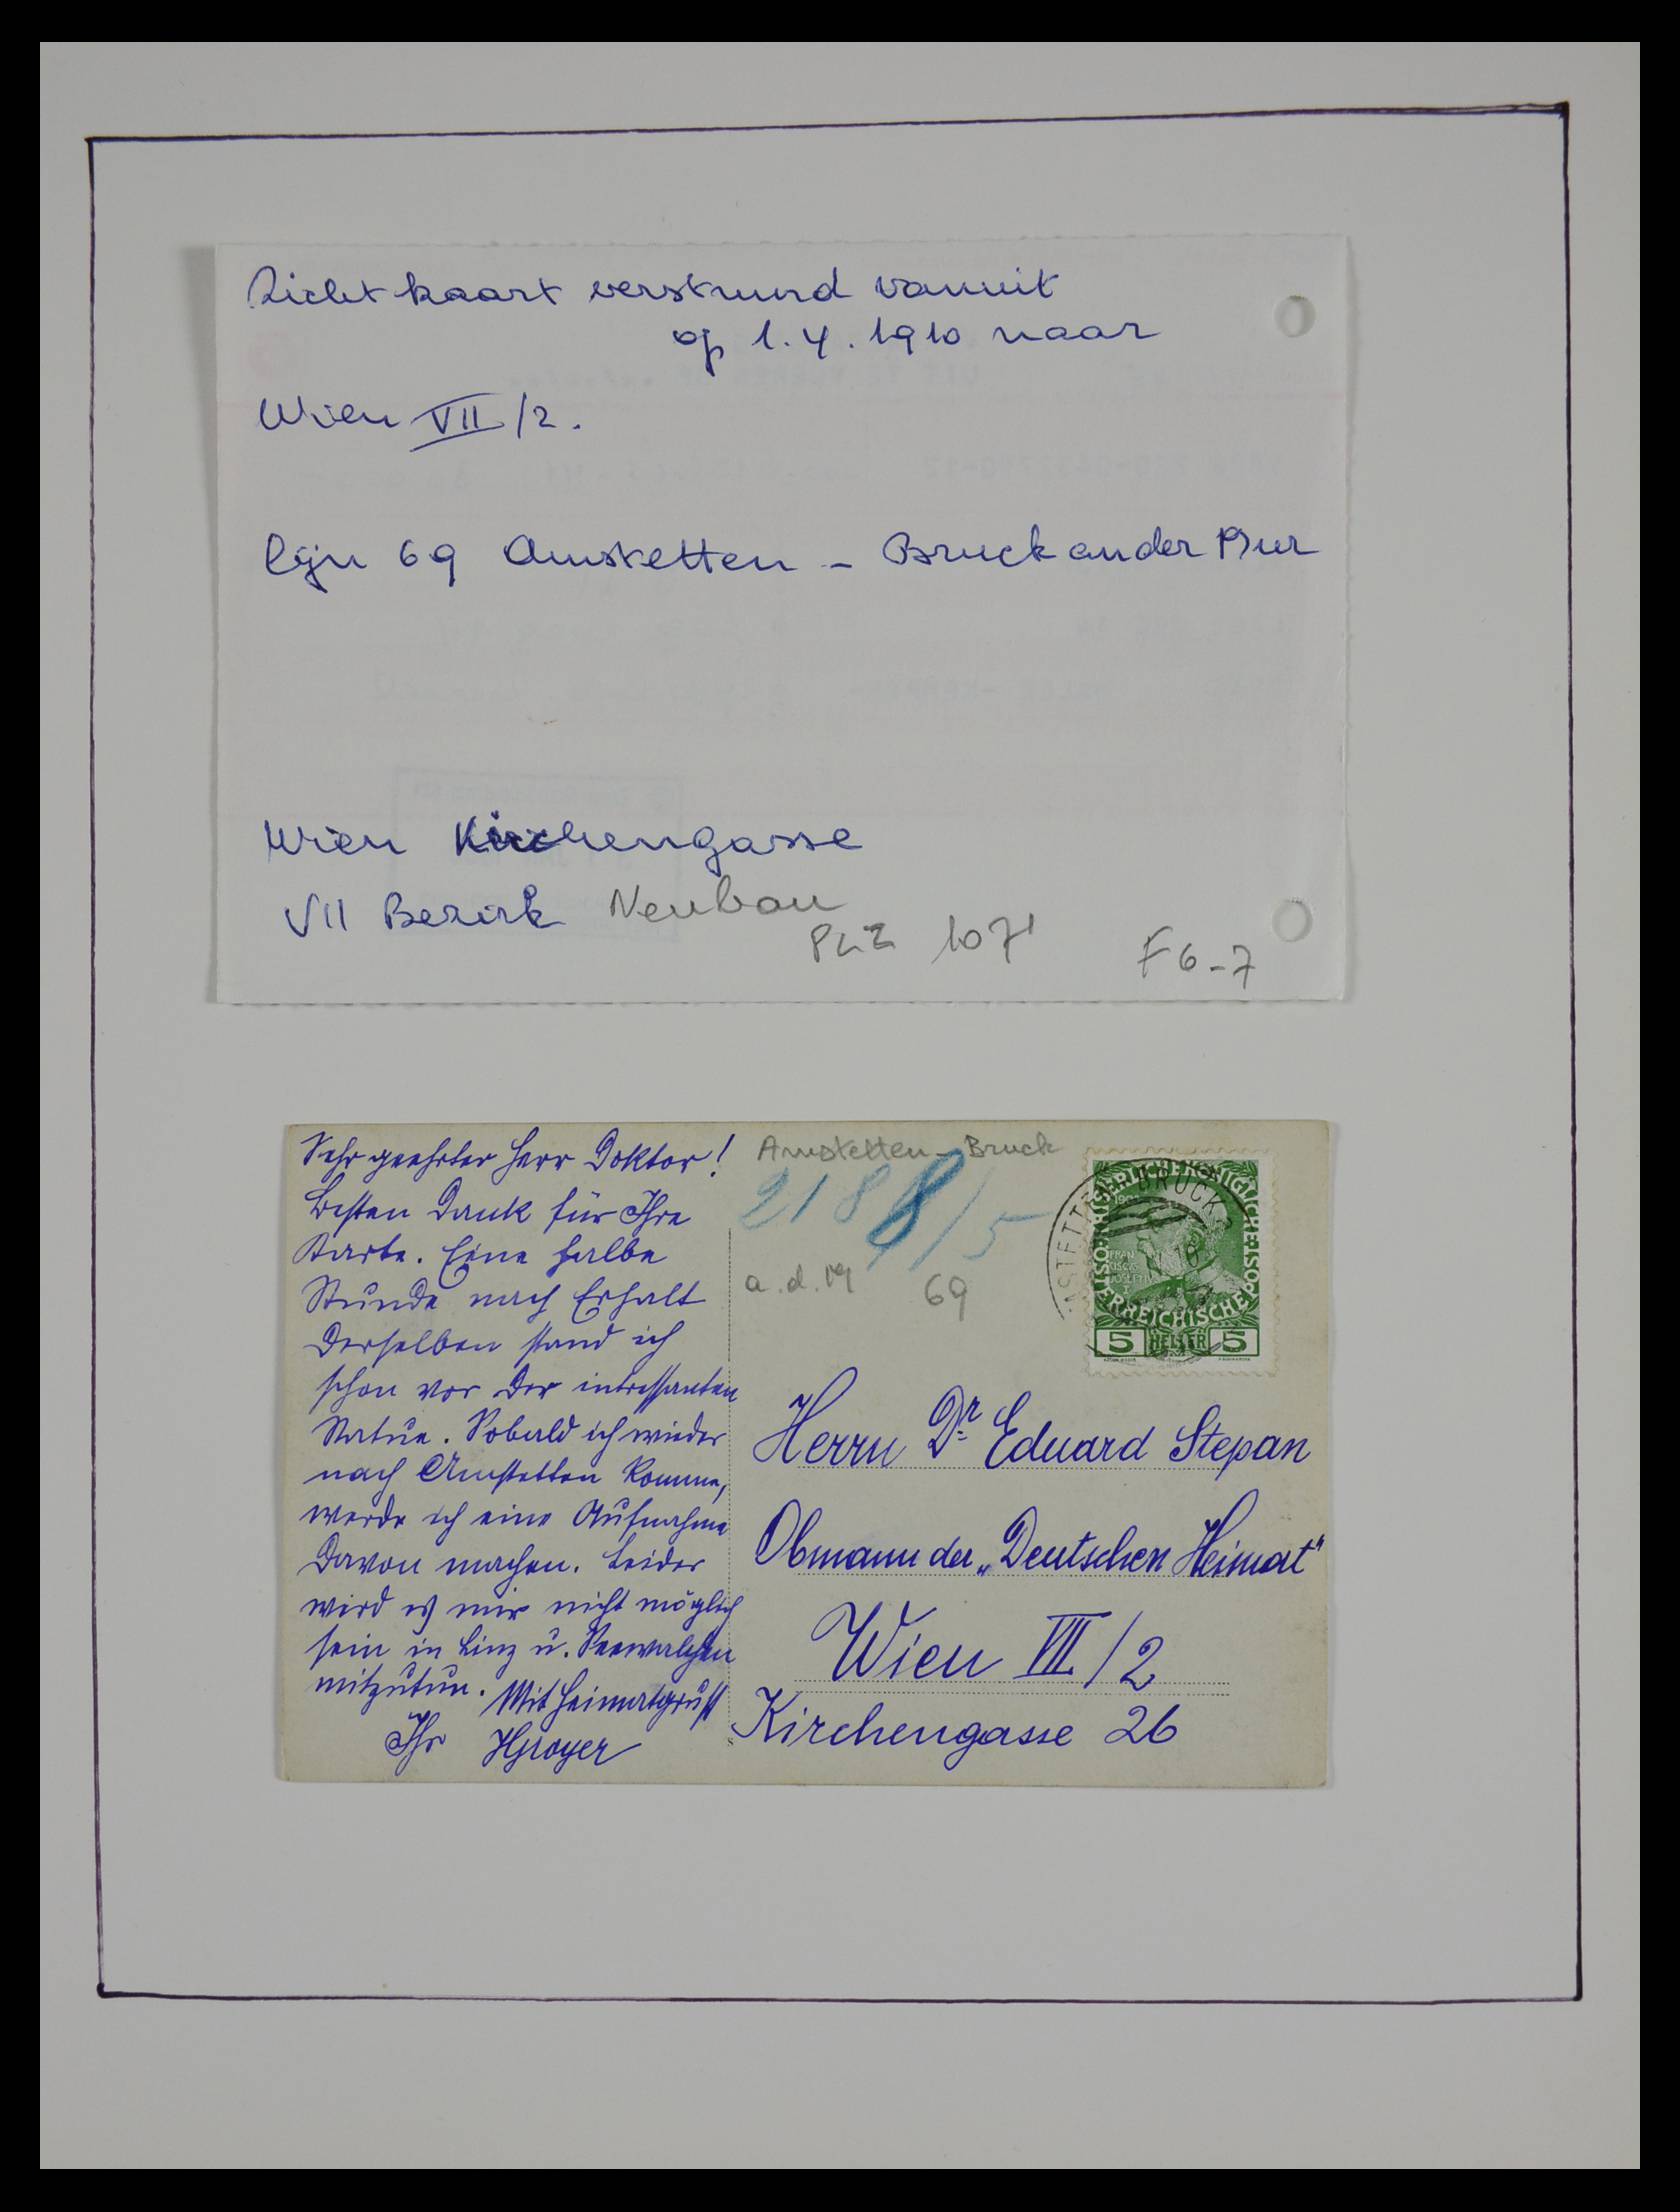 Zichtkaart verstuurd vanuit
op 1.4.1910 naar
Wien VII/2.
lijn 69 Amstetten - Bruck an der Mur
Wien Kirchengasse
VII Bezirk Neubau
PLZ 1071
F6-7
Sehr geehrter Herr Doktor!
Besten Dank für Ihre
Karte. Eine halbe
Stunde nach Erhalt
derselben stand ich
schon vor der intressanten
Statue. Sobald ich wieder
nach Amstetten komme,
werde ich eine Aufnahme
davon machen. Leider
wird es mir nicht möglich
sein in Linz u. Seewalchen
mitzutun. Mit Heimatgruß
Ihr
Amstetten - Bruck
218 8/5
a.d.M
69
BRUCK
KAISERLICHE KÖNIGLICHE ÖSTERREICHISCHE POST
FRANCISCVS JOSEPH I
5 HELLER 5
Herrn Dr. Eduard Stepan
Obmann der „Deutschen Heimat"
Wien VII/2
Kirchengasse 26